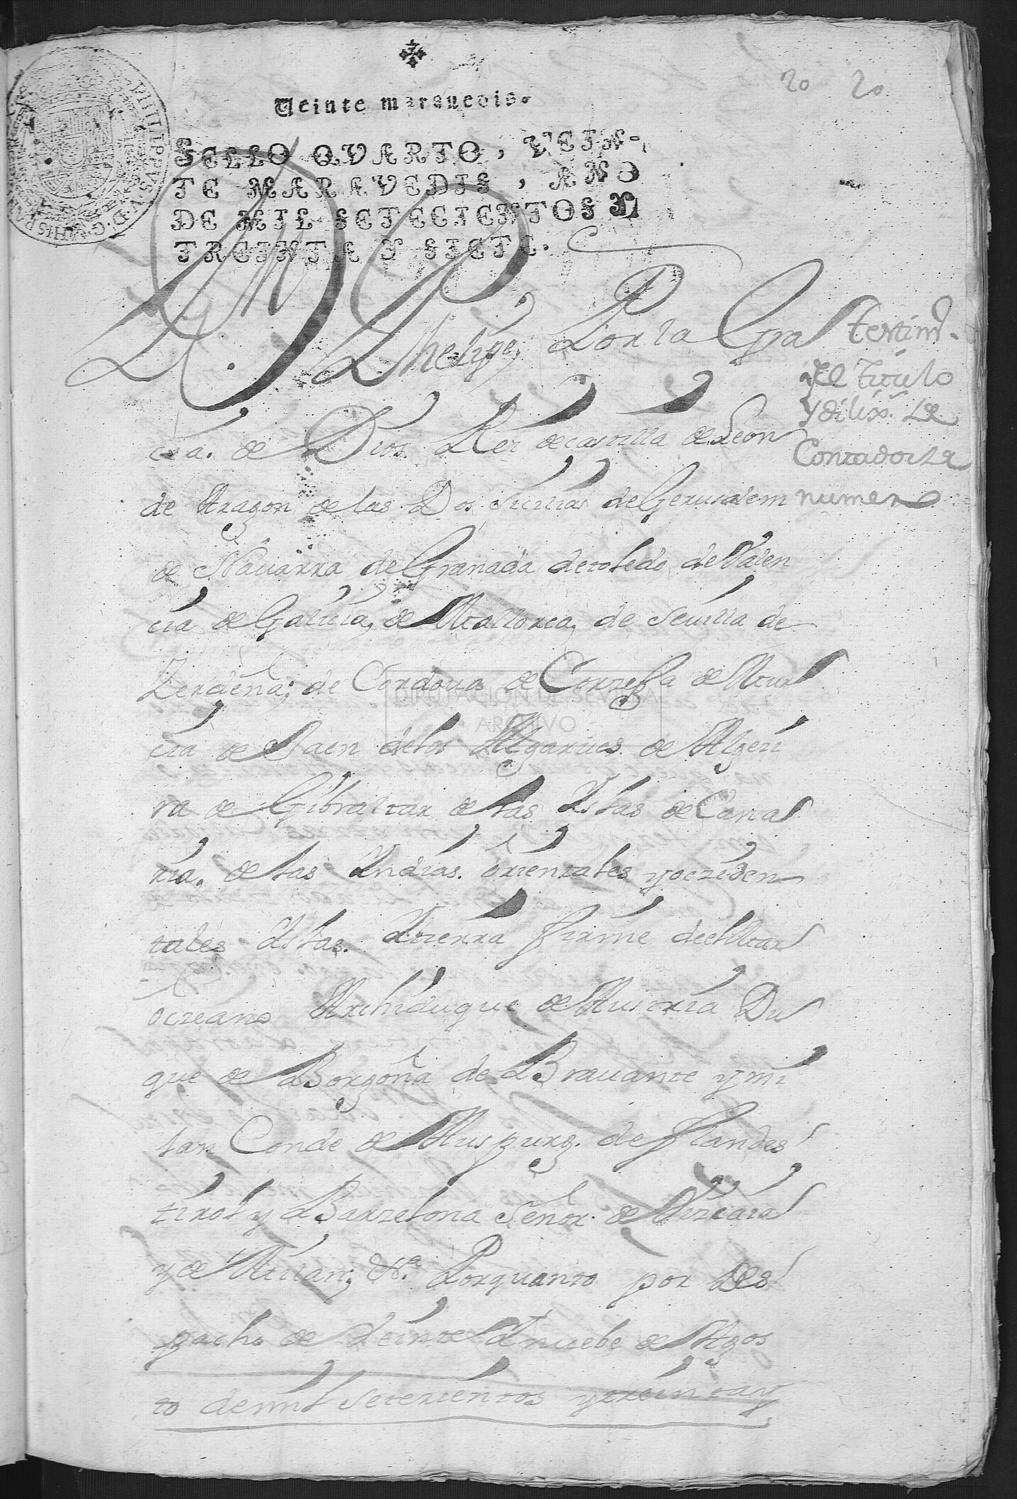 20 20
Veinte maravedis.
SELLO QVARTO, VEIN-
TE MARAVEDIS, AÑO
DE MIL SETECIENTOS Y
TREINTA Y SIETE.
Dn Phelipe Por la Gra
cia. de Dios Rei de castilla de Leon
de Aragon de las Dos Sicilias de Gerusalem
de Navarra de Granada de toledo de Valen
cia de Galicia, de Mallorca, de Sevilla de
Zerdeña; de Cordova de Corzega de Mur
cia de Jaen delos Algarves de Algeci
ra de Gibraltar de las Yslas de Cana
ria. de las Yndias. orientales yocciden
tales Yslas. Ytierra firme del Mar
oceano Archiduque de Austria Du
que de Borgoña de Bravante y mi
lan Conde de Auspurg. de flandes
tirol y Barzelona Señor de Vizcaia
y de Molina; &.ª Porquanto por des
pacho de Veinte Ynuebe de Agos
to demil setezientos ytreinta y
testimo.
del titulo
y dilixs. de
Contador de
numero
DIPUTACIÓN DE SEVILLA
ARCHIVO